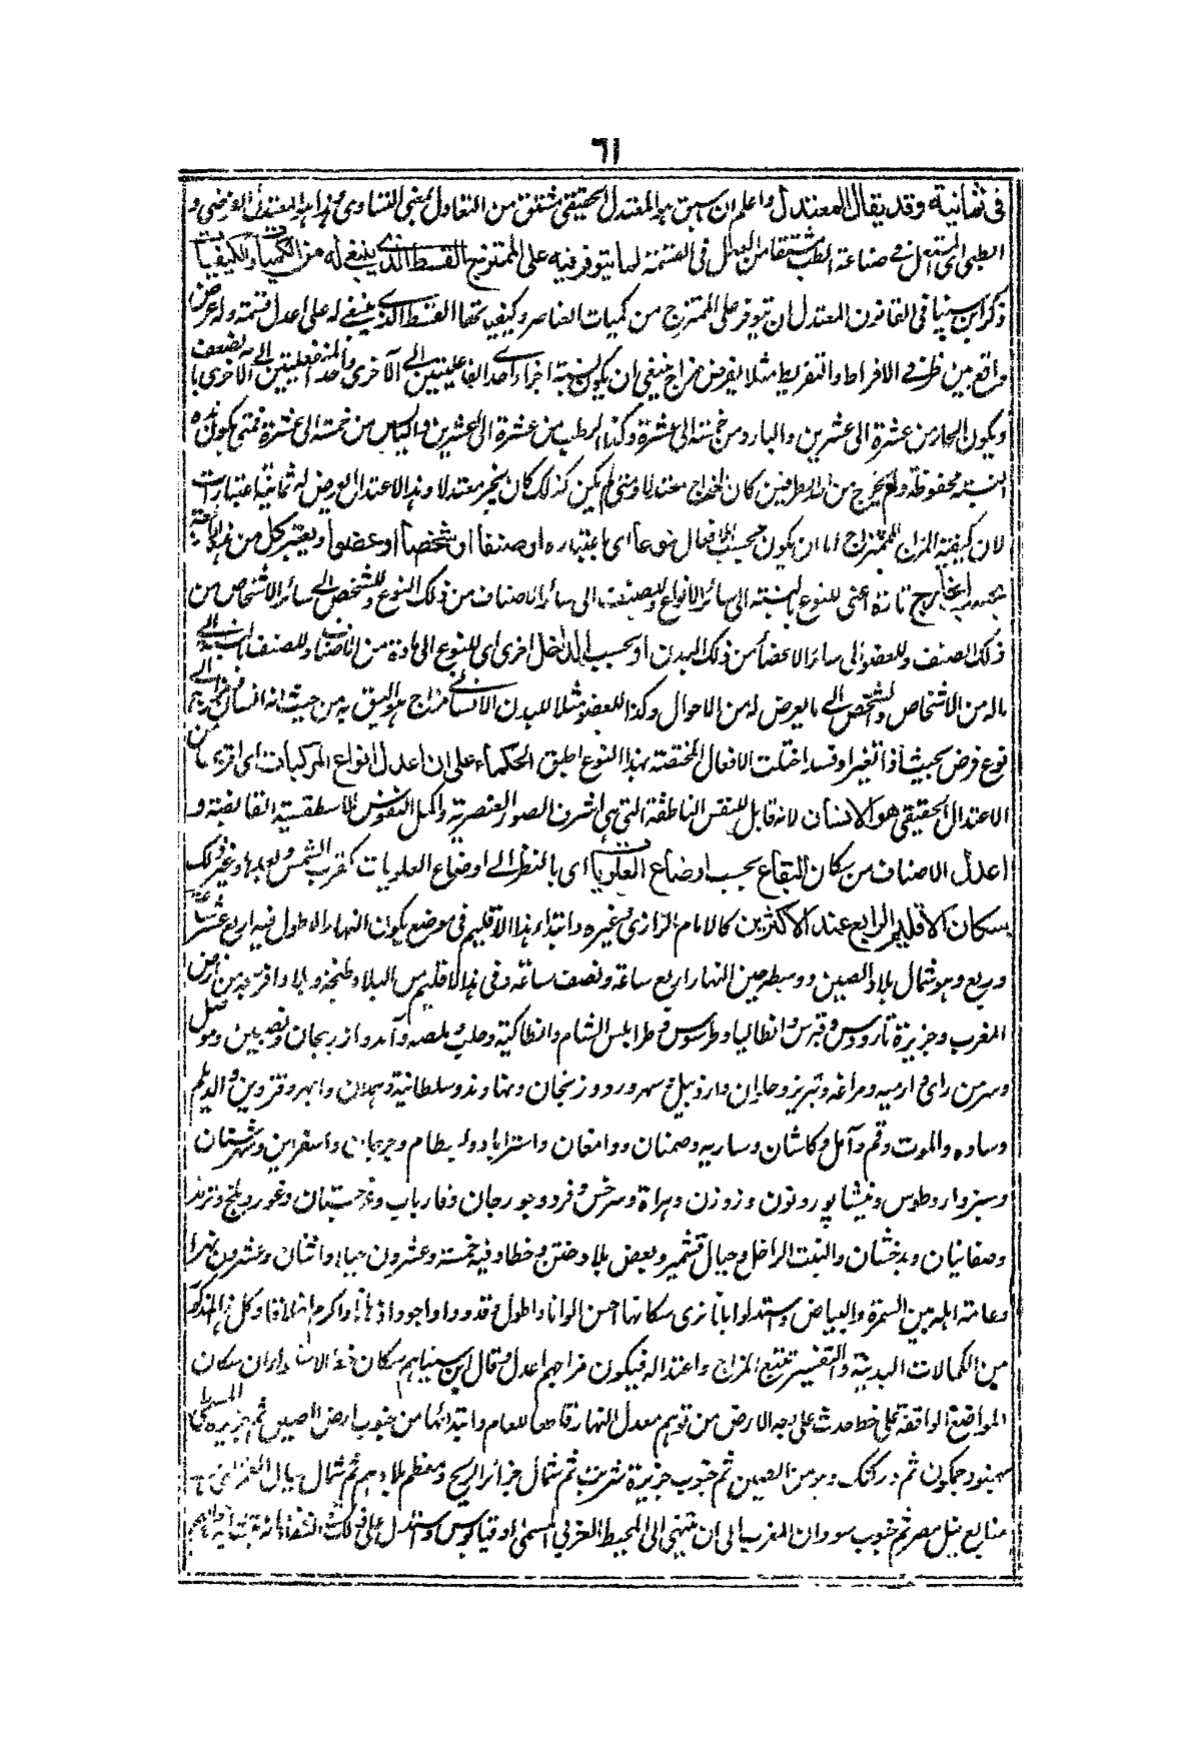 ٦١
فى ثمانية وقد يقال المعتدل واعلم ان سبق هو المعتدل الحقيقى مشتق من التعادل بمعنى التساوى وهذا هو المعتدل الفرضى و
الطبى المستعمل فى صناعة الطب مشتقا من العدل فى القسمة لما يتوفر فيه على الممتزج القسط الذى ينبغى له من الكميات والكيفيات
ذكر ابن سينا فى القانون المعتدل ان يتوفر على الممتزج من كميات العناصر وكيفياتها القسط الذى ينبغى له على اعدل قسمة وله عرض
واقع بين طرفى الافراط والتفريط مثلا يفرض مزاج ينبغى ان يكون نسبة اجزاء احد الفاعليتين الى الآخرى واحد المنفعلتين الى الآخرى بالضعف
ويكون الحار من عشرة الى عشرين والبارد من خمسة الى عشرة وكذا الرطب من عشرة الى عشرين واليابس من خمسة الى عشرة فمتى يكون هذه
النسبة محفوظة ولم يخرج من هذا الطرفين كان المزاج معتدلا ومتى لم يكن كذلك كان غير معتدل وهذا الاعتدال يعرض له ثمانية اعتبارات
لان كيفية المزاج الممتزج اما ان يكون بحسب الافعال نوعا اى باعتباره او صنفا او شخصا او عضوا ويعتبر كل من هذه الاربعة
بحسب الخارج تارة اعنى للنوع بالنسبة الى سائر الانواع وللصنف الى سائر الاصناف من ذلك النوع وللشخص الى سائر الاشخاص من
ذلك الصنف وللعضو الى سائر الاعضاء من ذلك البدن او بحسب الداخل اخرى اى للنوع الى ماده من الاصناف وللصنف بالنسبة الى
ماله من الاشخاص وللشخص الى ما يعرض له من الاحوال وكذا للعضو مثلا للبدن الانسانى مزاج هو اليق به من حيث انه انسان
نوع فرض بحيث اذا تغير او فسد اختلت الافعال المختصة بهذا النوع اطبق الحكماء على ان اعدل انواع المركبات اى اقربها من
الاعتدال الحقيقى هو الانسان لانه قابل للنفس الناطقة التى هى اشرف الصور العنصرية واكمل النفوس الاسطقسية الفائضة و
اعدل الاصناف من سكان البقاع بحسب اوضاع العلويات اى بالنظر الى اوضاع العلويات كقرب الشمس وبعدها وغير ذلك
سكان الاقليم الرابع عند الاكثرين كالامام الرازى وغيره وابتداء هذا الاقليم فى موضع يكون النهار الاطول فيه اربع عشر ساعة
وربع وهو شمال بلاد الصين ووسطه حين النهار اربع ساعة ونصف ساعة وفى هذا الاقليم من البلاد طنجة وبلاد افرنجه من ارض
المغرب وجزيرة تارودس وقبرس وانطاليا وطرسوس وطرابلس الشام وانطاكية وحلب وملصه وآمد وازربجان ونصيبين وموصل
وسر من راى وارميه ومراغه وتبريز وحلران واردبيل وسهرورد وزنجان ونهاوند وسلطانية وهمدان وابهر وقزوين والديلم
وساوه والموت وقم وآمل وكاشان وساريه وصمنان ودامغان واستراباد وبسطام وجرجان واسفراين وشهرستان
وسبزوار وطوس ونيشاپور وتون وزوزن وهراة وسرخس وفرد وجورجان وفارياب وغرجستان وغور وبلخ وترمذ
وصغانيان وبدخشان والتبت الراخل وجبال قشمير وبعض بلاد ختن وخطا وفيه خمسة وعشرون جبلا واثنان وعشرون نهرا
وعامة اهله بين السمرة والبياض واستدلوا بانا نرى سكانها احسن الوانا واطول قدودا واجود اذهانا واكرم اخلاقا وكل المذكور
من الكمالات البدنية والنفسية يتبع المزاج واعتداله فيكون مزاجهم اعدل وقال ابن سينا هم سكان خط الاستواء سكان
المواضع الواقعة على خط حدث على وجه الارض من توهم معدل النهار قاطعا للعام وابتدائها من جنوب ارض الصين ثم جزيرة
ثم جنوب جزيرة سرنديب ثم شمال جزائر الريح ومعظم بلادهم ثم شمال جبال القمر التى
منابع نيل مصر ثم جنوب سودان المغرب الى ان ينتهى الى المحيط الغربى المسمى اوقيانوس واستدل على ذلك الشفا